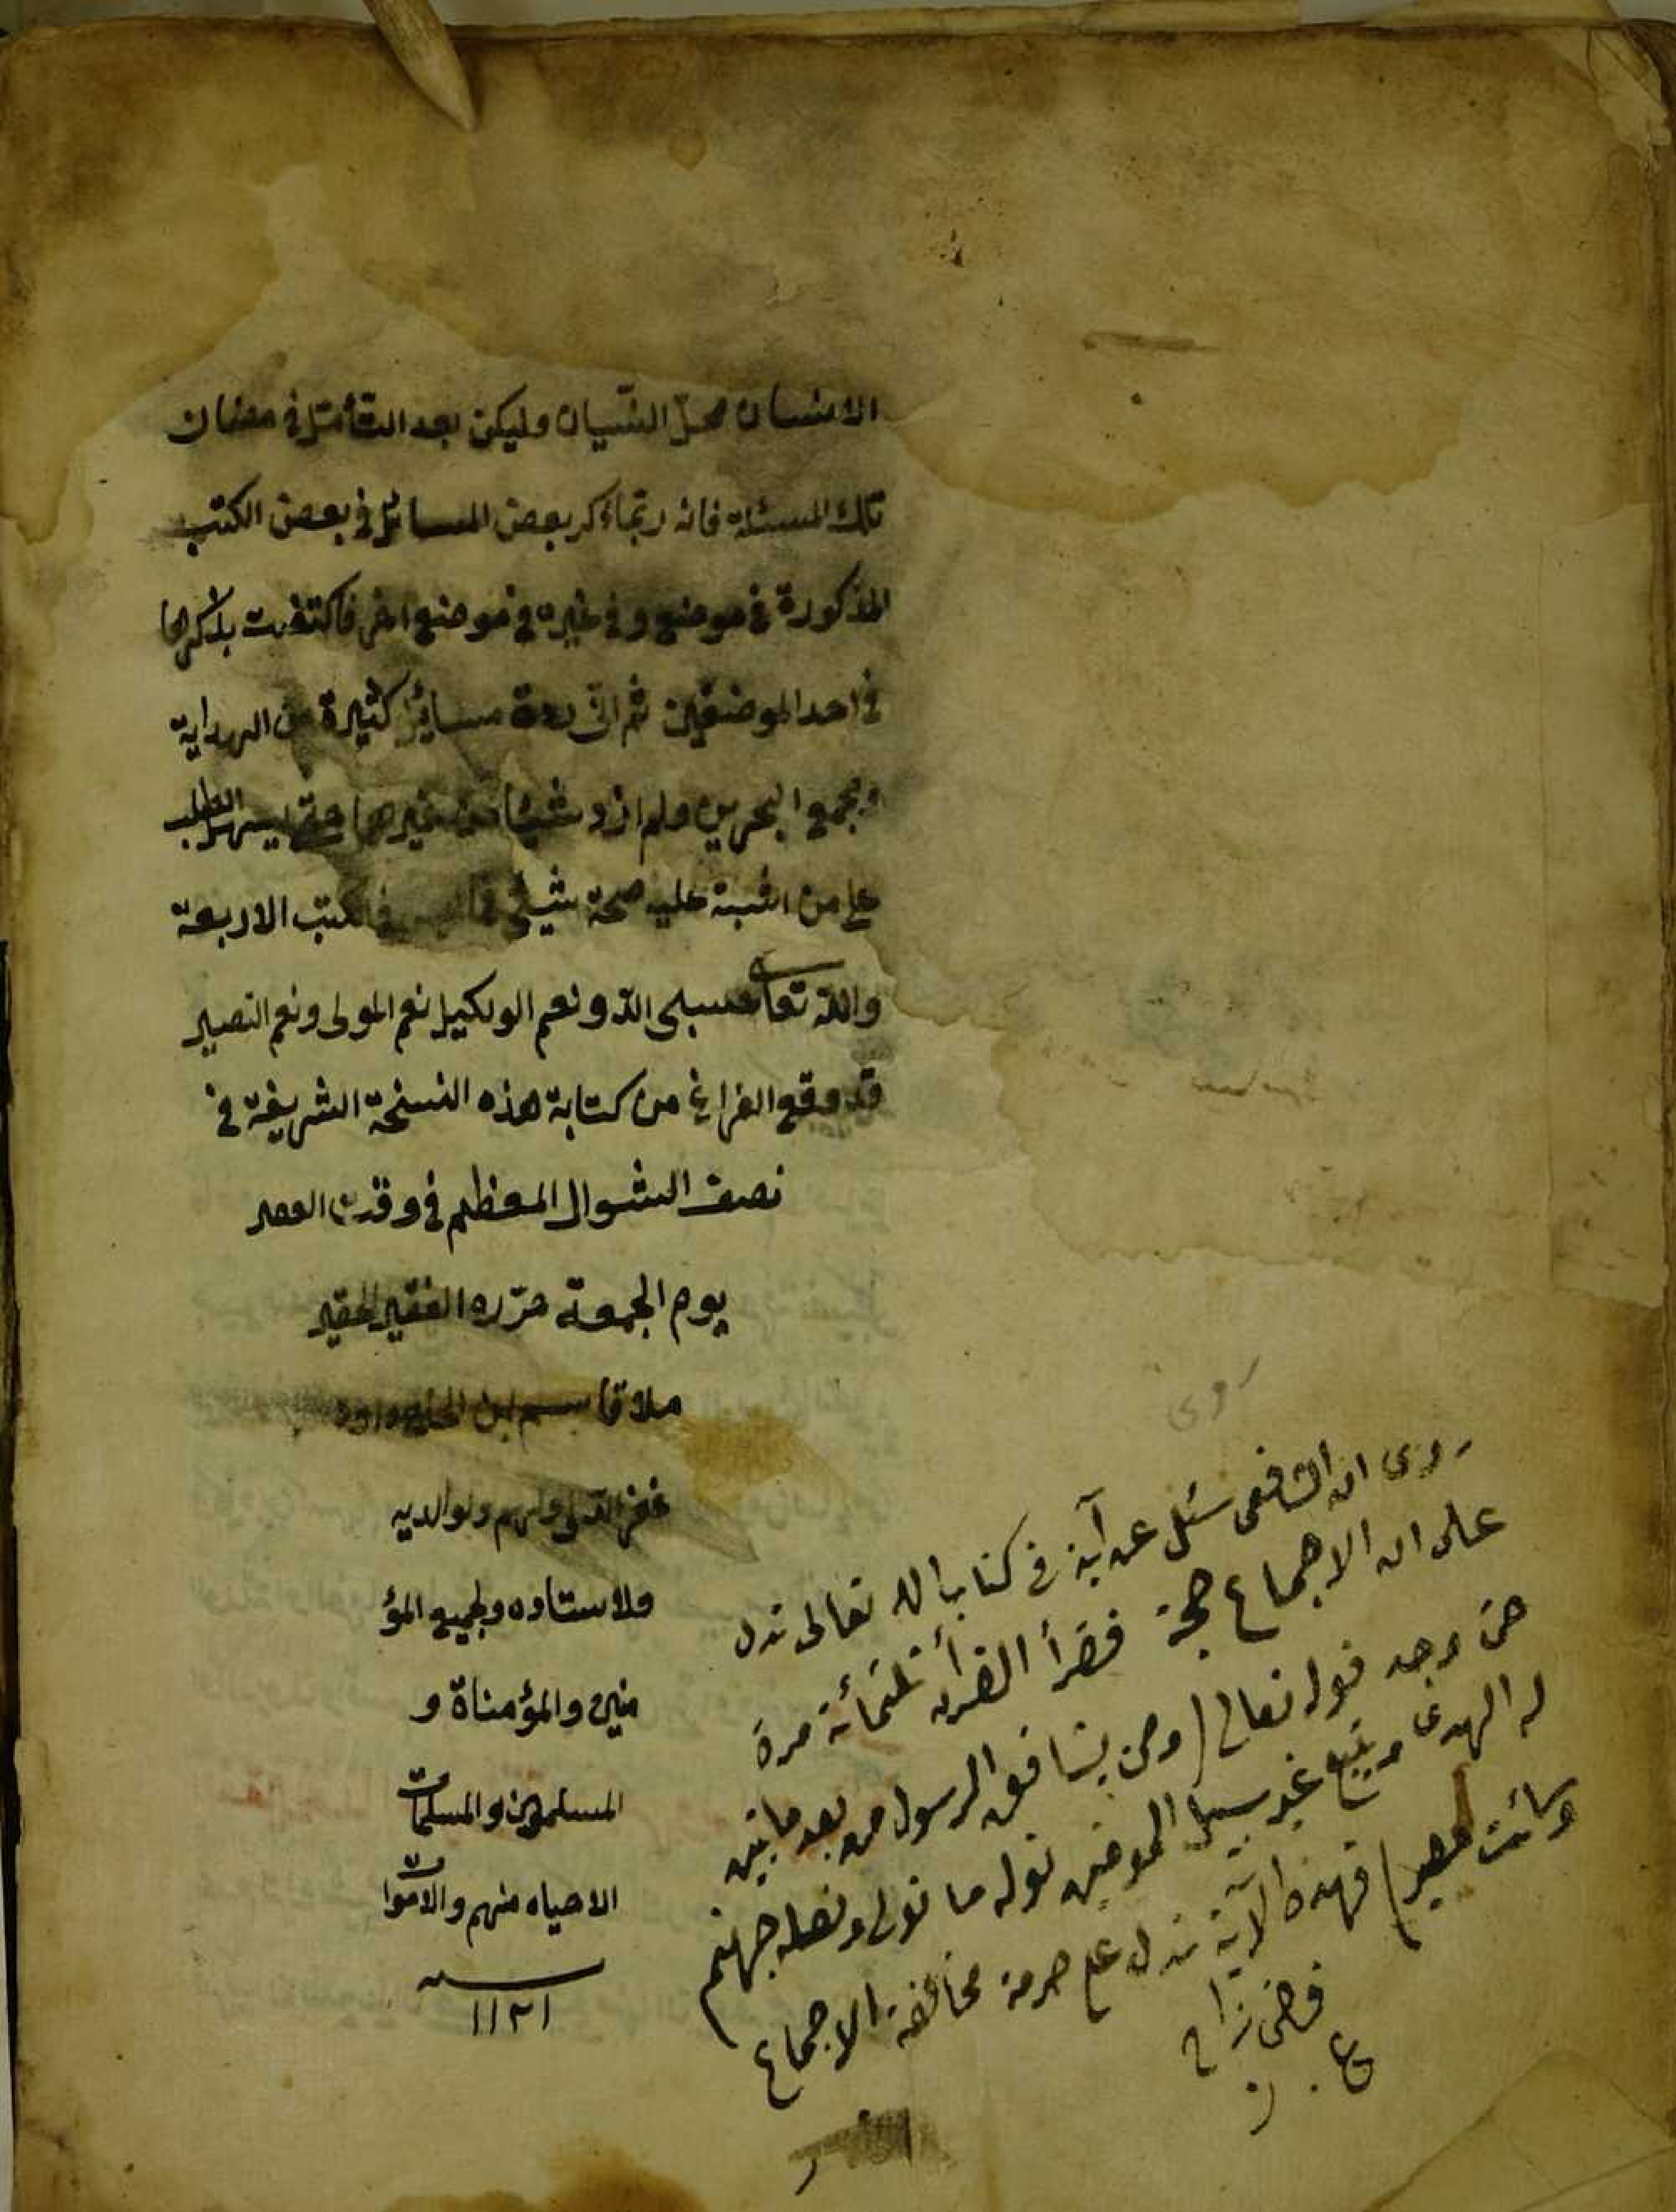 الانسان محلّ النسّيان وليكن بعد التأمّل في مضان
تلك المسئلة فانه ربّما ذكر بعض المسائل في بعض الكتب
المذكورة في موضع وفي غيره في موضع اخر فاكتفيت بذكرها
في احد الموضعين ثم انّى زدة مسائل كثيرة من الهداية
ومجمع البحرين ولم ازد شيئا من غيرهما حتى يسهل الطلب
على من اشبته عليه صحة شيئ مما ليس في الكتب الاربعة
والله تعالى حسبى الله ونعم الوكيل نعم المولى ونعم النصير
قد وقع الفراغ من كتابة هذه النسخة الشريفة في
نصف الشوال المعظم في وقت العصر
يوم الجمعة حرّره الفقير الحقير
ملا قاسم ابن
غفر الله له ولهم ولوالديه
ولاستاده ولجميع المؤ
منين والمؤمناة و
المسلمين والمسلمات
الاحياه منهم والاموات
سنه
١١٢١
روى
روى ان الشافعى سئل عن آية في كتاب الله تعالى تدل
على ان الاجماع حجة فقرأ القرأن ثلثمائة مرة
حتى وجد قوله تعالى (ومن يشاقق الرسول من بعد ما تبين
له الهدى ويتبع غير سبيل المومنين نوله ما تولى ونصله جهنم
وسائت مصير) فهذه الآية تدل على حرمة مخالفة الاجماع
قاضى زاد